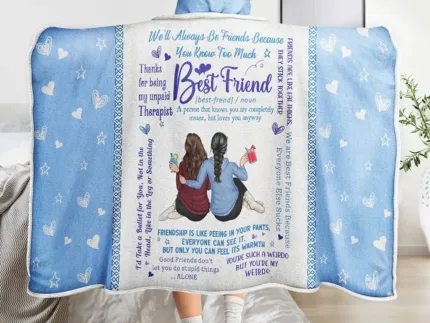 We'll Always Be Friends Because
You Know Too Much
Thanks
for being
my unpaid
Therapist
Best Friend
[best-frend] / noun
A person that knows you are completely
insane, but loves you anyway
THEY STICK TOGETHER
We are Best Friends Because
Everyone Else Sucks
I'd Take a Bullet for You, Not in the
Head, But in the Leg or Something
FRIENDSHIP IS LIKE PEEING IN YOUR PANTS,
EVERYONE CAN SEE IT,
BUT ONLY YOU CAN FEEL ITS WARMTH
Good Friends don't
let you do stupid things
... ALONE
YOU'RE SUCH A WEIRDO
BUT YOU'RE MY
WEIRDO